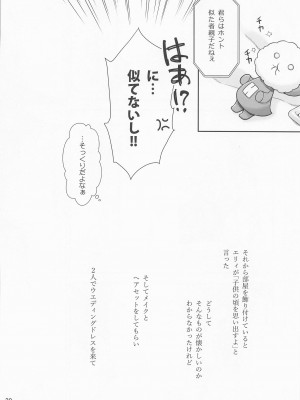 君らはホント
似た者親子だねぇ
はあ!?
に…
似てないし!!
…そっくりだよなぁ
それから部屋を飾り付けていると
エリィが「子供の頃を思い出すよ」と
言った
どうして
そんなものが懐かしいのか
わからなかったけれど
そしてメイクと
ヘアセットをしてもらい
2人でウエディングドレスを来て